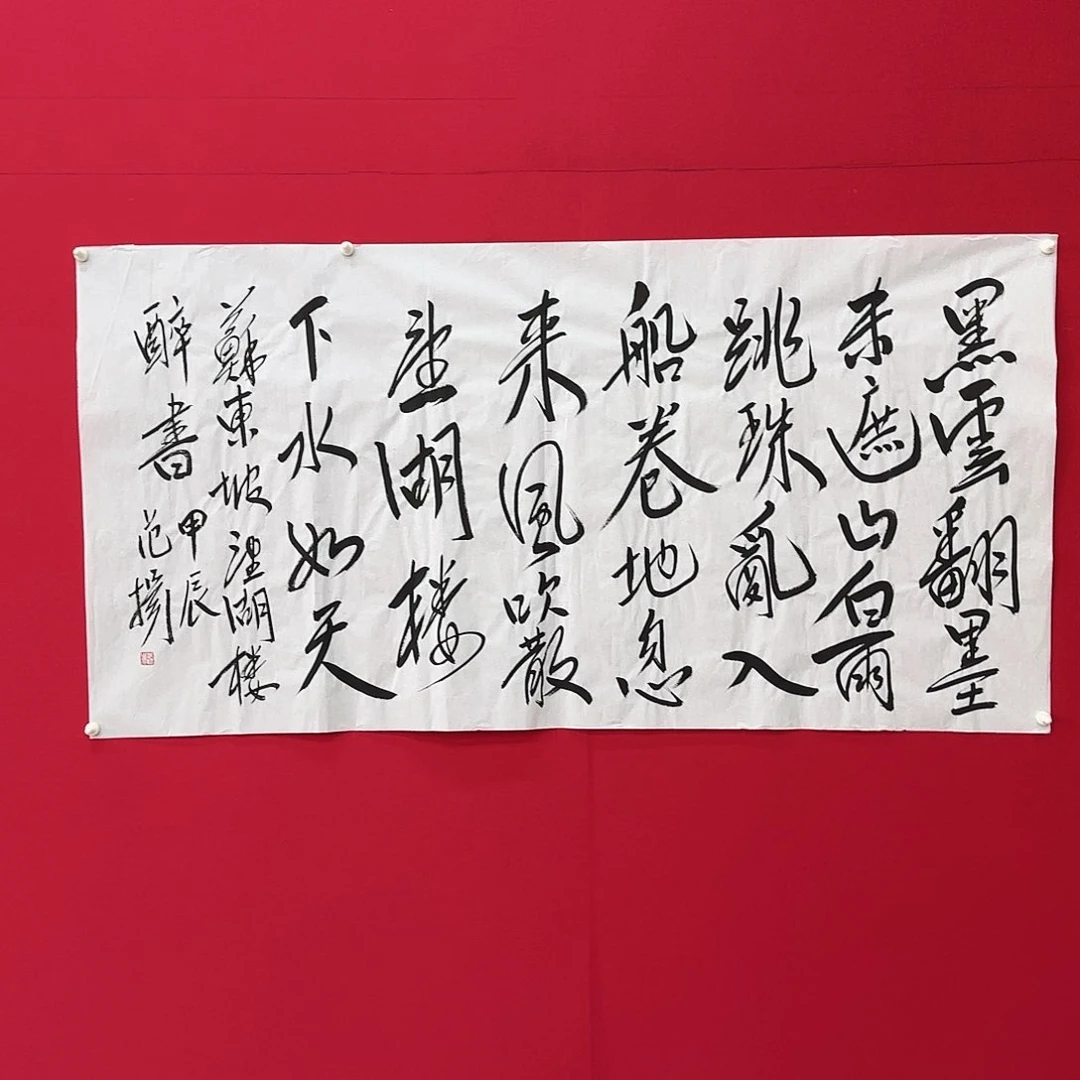 黑雲翻墨
未遮山白雨
跳珠亂入
船卷地忽
来風吹散
望湖楼
下水如天
蘇東坡湖楼
醉書
甲辰
范